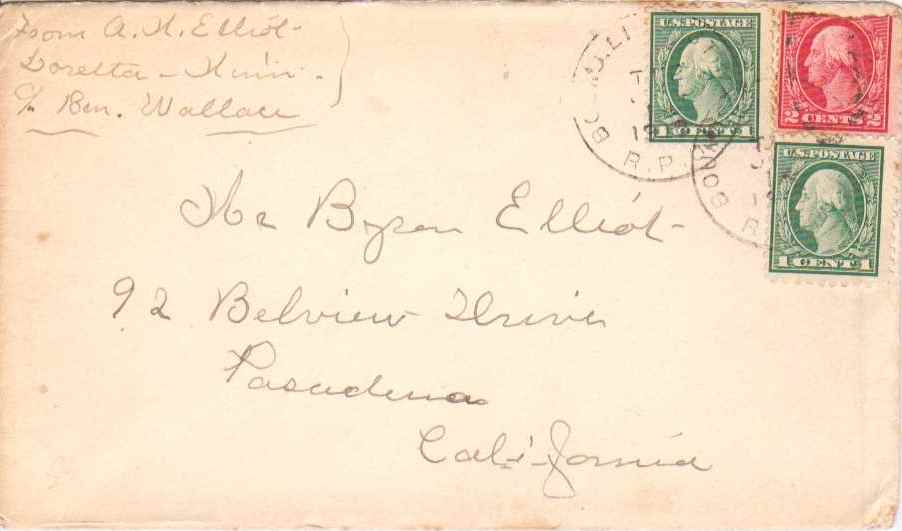 From A. H. Elliot
Loretta - Minn.
c/o Ben. Wallace
U.S. POSTAGE
1 CENT 1
2 CENTS 2
R.P.
U.S. POSTAGE
1 CENT 1
Mr Byron Elliot
92 Belview Drive
Pasadena
California